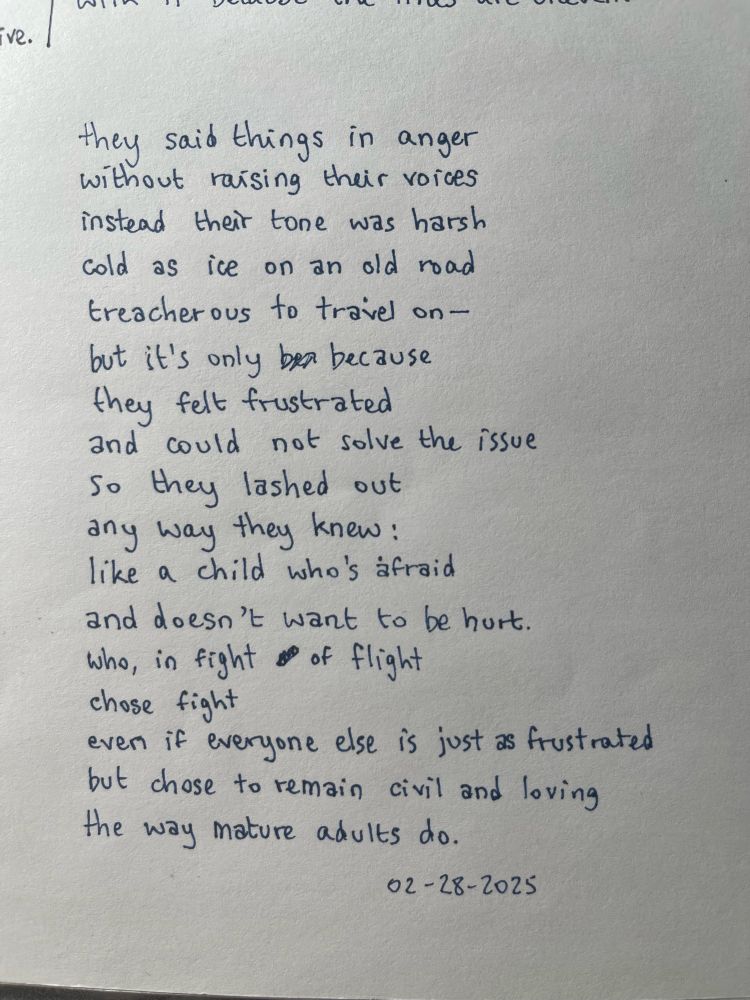 ive.
they said things in anger
without raising their voices
instead their tone was harsh
cold as ice on an old road
treacherous to travel on—
but it's only because
they felt frustrated
and could not solve the issue
so they lashed out
any way they knew:
like a child who's afraid
and doesn't want to be hurt.
who, in fight of flight
chose fight
even if everyone else is just as frustrated
but chose to remain civil and loving
the way mature adults do.
02-28-2025